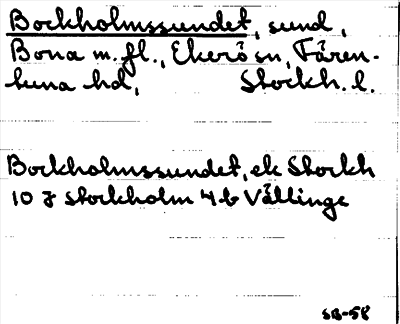 Bockholmssundet, sund,
Bona m.fl., Ekerö sn, Fären-
tuna hd, Stockh. l.
Bockholmssundet, ek Stockh
10 I Stockholm 4 b Vällinge
SB-58